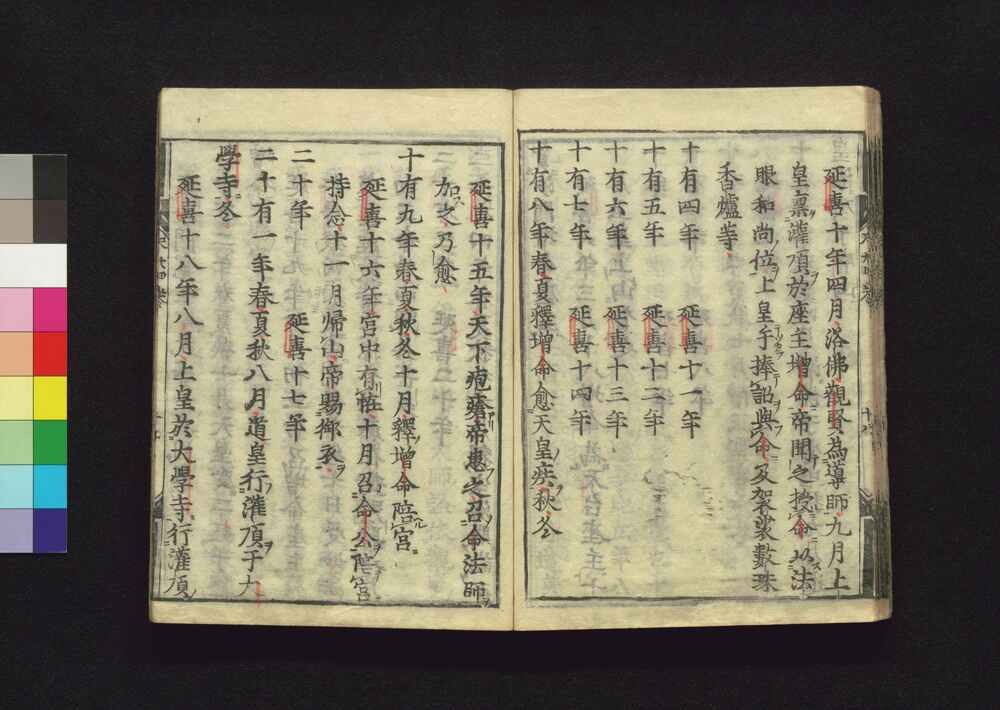 延喜十年四月洛佛觀賢為導師九月上
皇稟灌頂於座主增命帝聞之授命以法
眼和尚位上皇手捧詔與命及袈裟數珠
香爐等
十有四年 延喜十一年
十有五年 延喜十二年
十有六年 延喜十三年
十有七年 延喜十四年
十有八年春夏釋增命愈天皇疾秋冬
延喜十五年天下疱瘡帝患之召命法師
加之乃愈
十有九年春夏秋冬十月釋增命陪宮
延喜十六年宮中有恠十月召命公陪宮
持念十一月歸山帝賜御衣
二十年 延喜十七年
二十有一年春夏秋八月道皇行灌頂于大
學寺冬
延喜十八年八月上皇於大學寺行灌頂